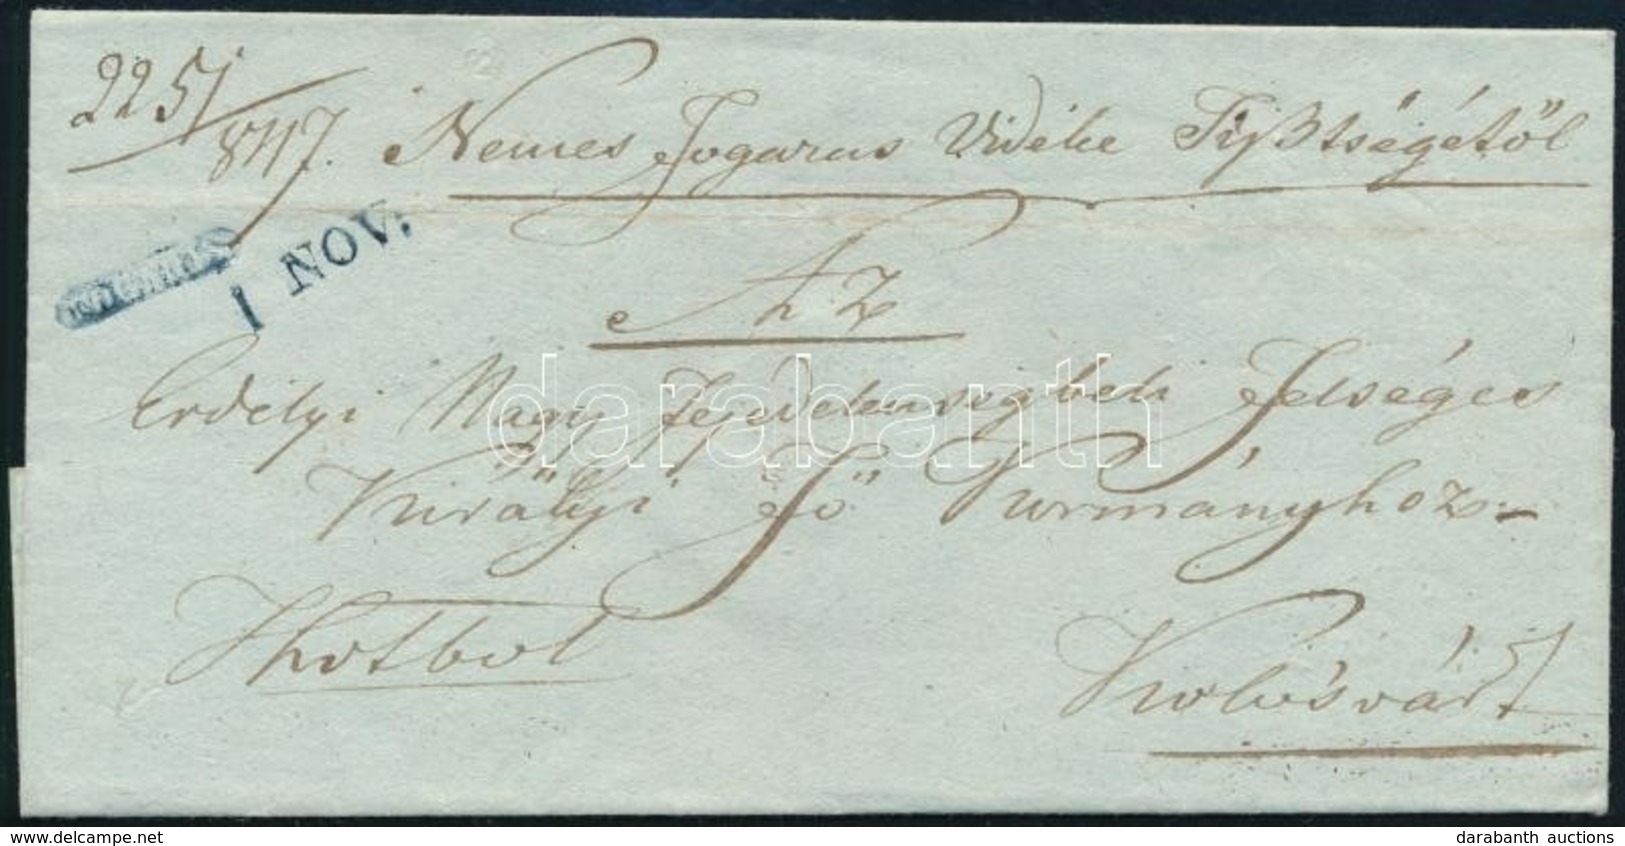 2251/847. Nemes Fogaras Vidéke Tisztségétől
1 NOV.
Az
Erdélyi Nagy Fejedelemségbeli Felséges
Királyi Fő Kormányhoz
Kolosvárt
darabanth
www.delcampe.net
darabanth auctions